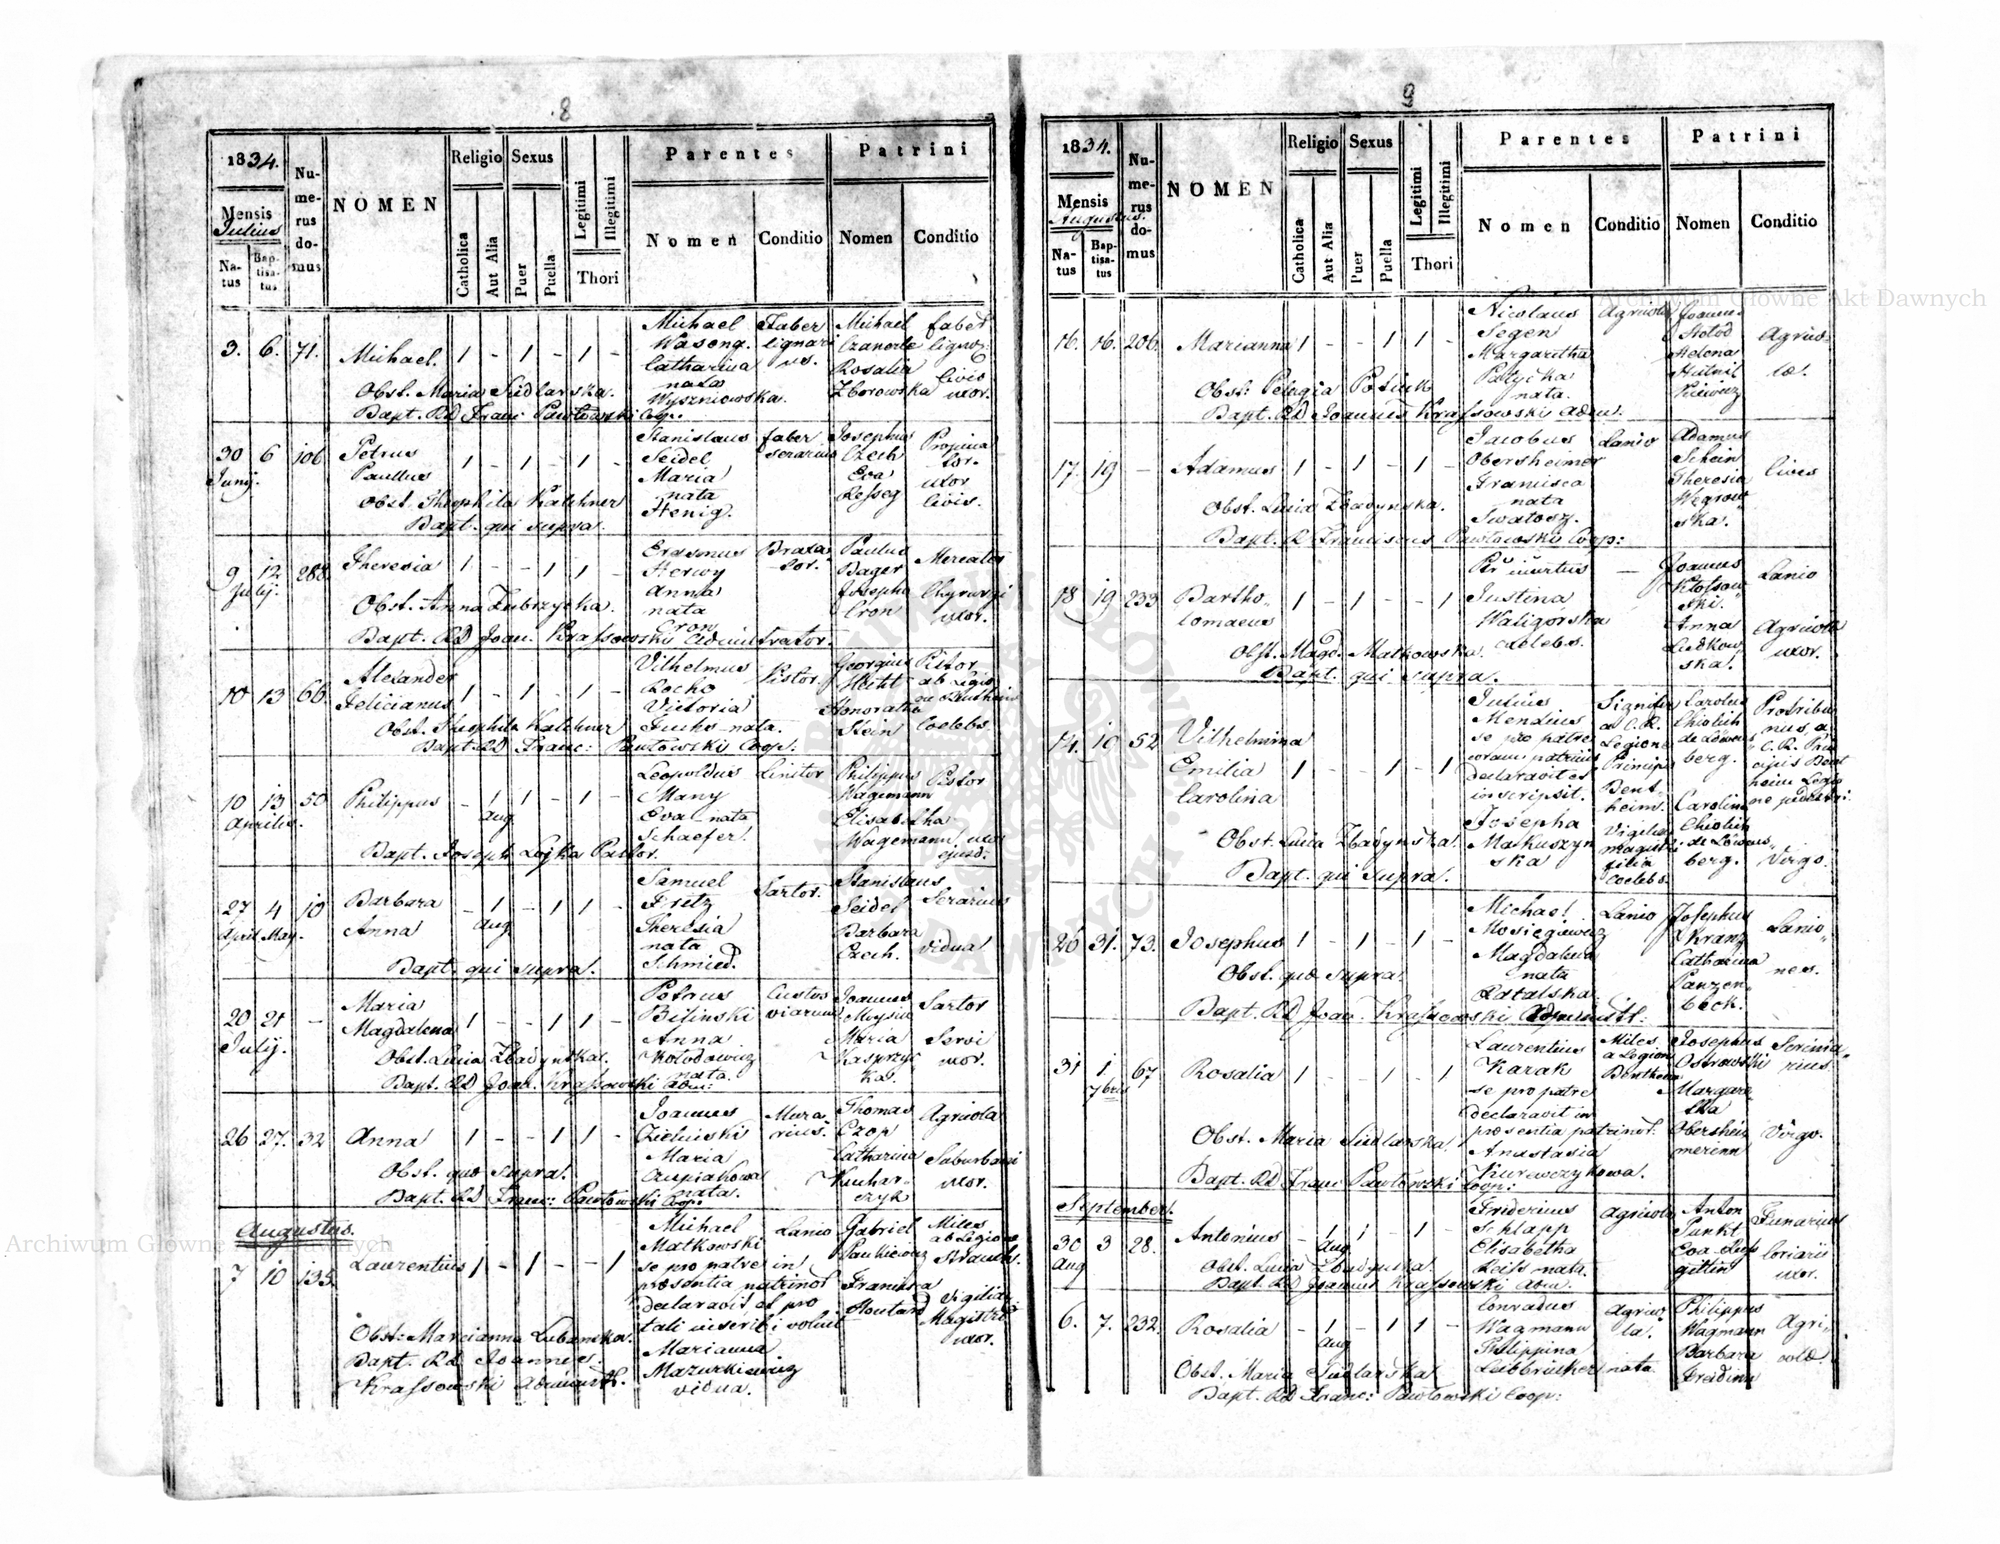 8
1834.
Mensis
Julius
Natus
Baptisatus
Numerus domus
NOMEN
Religio
Catholica
Aut Alia
Sexus
Puer
Puella
Legitimi
Illegitimi
Thori
Parentes
Nomen
Conditio
Patrini
Nomen
Conditio
3. 6. 71. Michael. 1 - 1 - 1 -
Michael Faber Michael faber
Catharina Rosalia civis
nata Zborowska uxor.
Wyszniowska.
Obst. Maria Sidlarska.
Bapt. RD Franc Pawłowski Coop.
30 6 106 Petrus 1 - 1 - 1 -
Juny. Paullus
Stanislaus faber Josephus Propina
Seidel serarius Czech tor.
Maria Eva uxor
nata civis.
Henig.
Obst. Theophila Kalchner
Bapt. qui supra.
9 12 288. Theresia 1 - - 1 1 -
July.
Erasmus Braxa Paulus Mercator
Herwy tor. Bager
Anna Josepha Chyrurgi
nata Cron uxor.
Cron
Obst. Anna Zubrzycka.
Bapt. RD Joan. Krassowski Administrator.
10 13 66. Alexander
Felicianus 1 - 1 - 1 -
Vilhelmus Pistor. Georgius Pistor
Rocho Hecht
Victoria Honoratha
Fuchs nata. Stein Coelebs
Obst. Theophila Kalchner
Bapt. RD Franc: Pawłowski Coop:
10 13 50 Philippus - 1 1 - 1 -
Aprilis. aug.
Leopoldus Linitor Philippus Pistor
Many Wagemann
Eva nata Elisabetha
Schaefer. Wagemann uxor
ejusd.
Bapt. Joseph Lojka Pastor.
27 4 10 Barbara - 1 - 1 1 -
April May. Anna aug.
Samuel Sartor. Stanislaus
Fritz Seidel Serarius
Theresia Barbara
nata Czech. vidua
Schmied.
Bapt. qui supra.
20 21 - Maria
July. Magdalena 1 - - 1 1 -
Petrus Custos Joannes Sartor
Bilinski viarum
Anna Maria Servi
Kołodowicz Kasprzyc uxor.
nata. ka.
Obst. Lucia Zbadynska.
Bapt. RD Joan. Krassowski Adm:
26 27. 32 Anna 1 - - 1 1 -
Joannes Mura Thomas Agricola
Zielinski rius. Czop
Maria Catharina Suburbani
Czupiakowa Kuchar- uxor.
nata. czyk
Obst. quae supra.
Bapt. RD Franc: Pawłowski Coop.
Augustus.
7 10 135. Laurentius 1 - 1 - - 1
Michael Lanio Gabriel Miles
Matkowski Paukiewicz ab Legione
se pro patre in
praesentia patrinor Francisca
declaravit et pro Vigiliar.
tali inscribi voluit Magistri
Marianna uxor.
Mazurkiewicz
vidua.
Obst: Marianna Lubanska.
Bapt. RD Joannes
Krassowski Administ.
9
1834.
Mensis
Augustus.
Natus
Baptisatus
Numerus domus
NOMEN
Religio
Catholica
Aut Alia
Sexus
Puer
Puella
Legitimi
Illegitimi
Thori
Parentes
Nomen
Conditio
Patrini
Nomen
Conditio
16. 16. 206. Marianna 1 - - 1 1 -
Nicolaus Agricola Joannes
Segen Agrico-
Margaretha Helena lae.
Patycka
nata.
Obst: Pelagia
Bapt. RD Joannes Krassowski Adm:
17. 19 - Adamus 1 - 1 - 1 -
Jacobus Lanio Adamus
Obersheimer Schein Cives
Francisca Theresia
nata Węgrow
Swatosz. ska.
Obst. Lucia Zbadynska.
Bapt. R Franciscus Pawłowski Coop:
18 19 233 Bartho- 1 - 1 - - 1
lomaeus
Pr incertus - Joannes Lanio
Justina Kłossow
Waligorska ski.
coelebs. Anna Agricolae
Ludkow uxor.
ska.
Obst. Magd. Matkowska.
Bapt. qui supra.
14. 10 52. Vilhelmina
Emilia 1 - - 1 - 1
Carolina
Julius Signifer Carolus
Mendius a C.R. Chiolich
se pro patre Legione de Löwen
coram patrinis Principis berg.
declaravit et Bent-
inscripsit. heim. Carolina
Josepha Vigiliar Chiolich
Matkuszyn magistri de Löwen
ska filia berg. Virgo.
coelebs.
Obst. Lucia Zbadynska.
Bapt. qui supra.
26 31. 73. Josephus 1 - 1 - 1 -
Michael Lanio Josephus Lanio-
Mosiegiewicz Kranz nes.
Magdalena Catharina
nata Panzen-
Ratalska. beck.
Obst. quae supra.
Bapt. RD Joan. Krassowski Administ:
31 1 67 Rosalia 1 - - 1 - 1
7bris
Laurentius Miles Josephus
Karak a Legion Ostrowski
se pro patre Bentheim Margare-
declaravit in tha
praesentia patrinor. Obershei Virgo.
Anastasia merinn
Kurowczykowa.
Obst. Maria Sidlarska.
Bapt. RD Franc Pawłowski Coop:
September.
30 3 28. Antonius - 1 1 - 1 -
aug aug
Fridericus Agricola Anton Funarius
Schlapp Punkt
Elisabetha Eva Coriarii
Reiss nata. uxor.
Obst. Lucia Zbadynska.
Bapt. RD Joannes Krassowski Adm.
6. 7. 232. Rosalia - 1 - 1 1 -
aug
Conradus Agrico Philippus Agri-
Wagmann la. Wagmann colae.
Philippina Barbara
Leibbrücher nata
Obst. Maria Sidlarska
Bapt. RD Franc: Pawłowski Coop:
Archiwum Główne Akt Dawnych
Archiwum Główne Akt Dawnych
ARCHIWUM GŁÓWNE AKT DAWNYCH